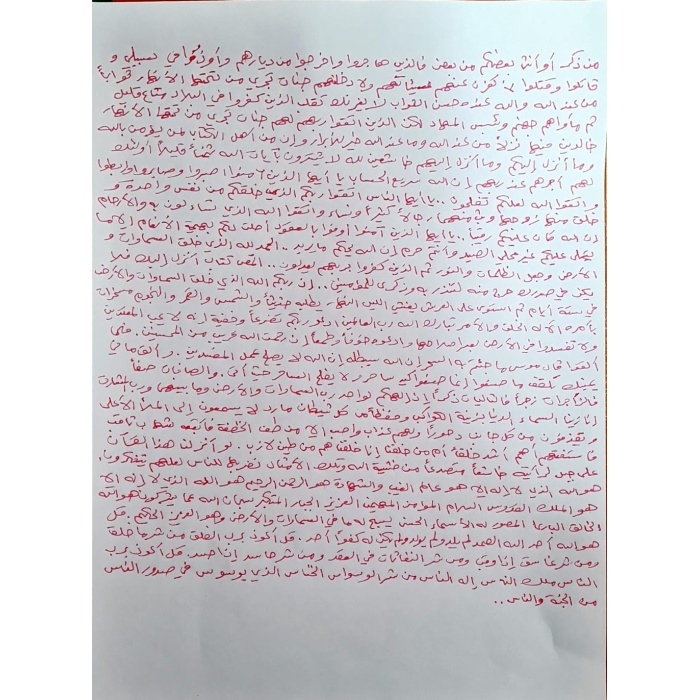 من ذكر أو أنثى بعضكم من بعض فالذين هاجروا وأخرجوا من ديارهم وأوذوا في سبيلي و
قاتلوا وقتلوا لأكفرن عنهم سيئاتهم ولأدخلنهم جنات تجري من تحتها الأنهار ثواباً
من عند الله والله عنده حسن الثواب لا يغرنك تقلب الذين كفروا في البلاد متاع قليل
ثم مأواهم جهنم وبئس المهاد لكن الذين اتقوا ربهم لهم جنات تجري من تحتها الأنهار
خالدين فيها نزلاً من عند الله وما عند الله خير للأبرار وإن من أهل الكتاب لمن يؤمن بالله
وما أنزل إليكم وما أنزل إليهم خاشعين لله لا يشترون بآيات الله ثمناً قليلاً أولئك
لهم أجرهم عند ربهم إن الله سريع الحساب يا أيها الذين آمنوا اصبروا وصابروا ورابطوا
واتقوا الله لعلكم تفلحون .. يا أيها الناس اتقوا ربكم الذي خلقكم من نفس واحدة و
خلق منها زوجها وبث منهما رجالاً كثيراً ونساء واتقوا الله الذي تساءلون به والأرحام
إن الله كان عليكم رقيباً .. يا أيها الذين آمنوا أوفوا بالعقود أحلت لكم بهيمة الأنعام إلا ما
يتلى عليكم غير محلي الصيد وأنتم حرم إن الله يحكم ما يريد .. الحمد لله الذي خلق السماوات و
الأرض وجعل الظلمات والنور ثم الذين كفروا بربهم يعدلون .. المص كتاب أنزل إليك فلا
يكن في صدرك حرج منه لتنذر به وذكرى للمؤمنين .. إن ربكم الله الذي خلق السماوات والأرض
في ستة أيام ثم استوى على العرش يغشي الليل النهار يطلبه حثيثاً والشمس والقمر والنجوم مسخرات
بأمره ألا له الخلق والأمر تبارك الله رب العالمين ادعو ربكم تضرعاً وخفية إنه لا يحب المعتدين
ولا تفسدوا في الأرض بعد إصلاحها وادعوه خوفاً وطمعاً إن رحمت الله قريب من المحسنين . فلما
ألقوا قال موسى ما جئتم به السحر إن الله سيبطله إن الله لا يصلح عمل المفسدين . وألق ما في
يمينك تلقف ما صنعوا إنما صنعوا كيد ساحر ولا يفلح الساحر حيث أتى . والصافات صفاً
فالزاجرات زجراً فالتاليات ذكراً إن إلهكم لواحد رب السماوات والأرض وما بينهما ورب المشارق
إنا زينا السماء الدنيا بزينة الكواكب وحفظاً من كل شيطان مارد لا يسمعون إلى الملأ الأعلى
ويقذفون من كل جانب دحوراً ولهم عذاب واصب إلا من خطف الخطفة فأتبعه شهاب ثاقب
فاستفتهم أهم أشد خلقاً أم من خلقنا إنا خلقناهم من طين لازب . لو أنزلنا هذا القرآن
على جبل لرأيته خاشعاً متصدعاً من خشية الله وتلك الأمثال نضربها للناس لعلهم يتفكرون .
هو الله الذي لا إله إلا هو عالم الغيب والشهادة هو الرحمن الرحيم هو الله الذي لا إله إلا
هو الملك القدوس السلام المؤمن المهيمن العزيز الجبار المتكبر سبحان الله عما يشركون هو الله
الخالق البارئ المصور له الأسماء الحسنى يسبح له ما في السماوات والأرض وهو العزيز الحكيم . قل
هو الله أحد الله الصمد لم يلد ولم يولد ولم يكن له كفواً أحد . قل أعوذ برب الفلق من شر ما خلق
ومن شر غاسق إذا وقب ومن شر النفاثات في العقد ومن شر حاسد إذا حسد . قل أعوذ برب
الناس ملك الناس إله الناس من شر الوسواس الخناس الذي يوسوس في صدور الناس
من الجنة والناس ..